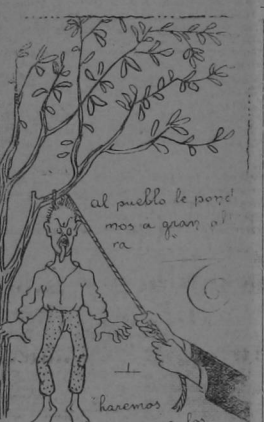 al pueblo le pone
mos a gran al
ra
haremos